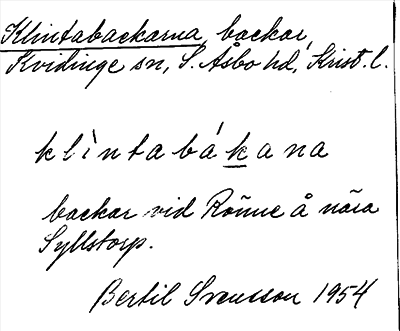 Klintabackarna, backar,
Kvidinge sn, S. Åsbo hd, Krist. l.
klìntabákana
backar vid Rönne å nära
Syllstorp.
Bertil Svensson 1954